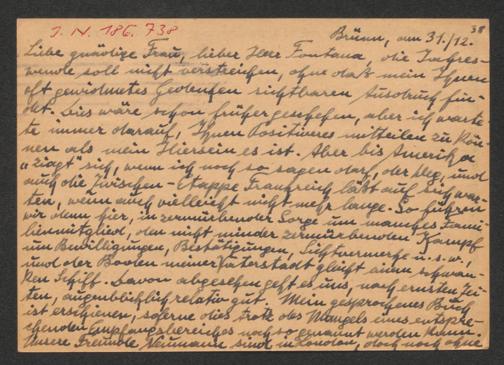 J. N. 186.738
38
Brünn, am 31./12.
Liebe gnädige Frau, lieber Herr Fontana, die Jahres-
wende soll nicht verstreichen, ohne daß mein Ihnen
oft gewidmetes Gedenken sichtbaren Ausdruck fin-
det. Dies wäre schon früher geschehen, aber ich warte-
te immer darauf, Ihnen Positiveres mitteilen zu kön-
nen als mein Hiersein es ist. Aber bis Amerika
"ziagt" sich, wenn ich noch so sagen darf, der Weg, und
auch die Zwischen-Etappe Frankreich läßt auf sich war-
ten, wenn auch vielleicht nicht mehr lange. So führen
wir denn hier, in zermürbender Sorge um manches Fami-
lienmitglied, den nicht minder zermürbenden Kampf
um Bewilligungen, Bestätigungen, Sichtvermerke u. s. w.,
und der Boden meiner Vaterstadt gleicht einem schwan-
ken Schiff. Davon abgesehen geht es uns, nach ernsten Zei-
ten, augenblicklich relativ gut. Mein gesprochenes Buch
ist erschienen, soferne dies trotz des Mangels eines entspre-
chenden Empfangsbereiches noch so genannt werden kann.
Unsere Freunde Neumann sind in London, doch noch ohne